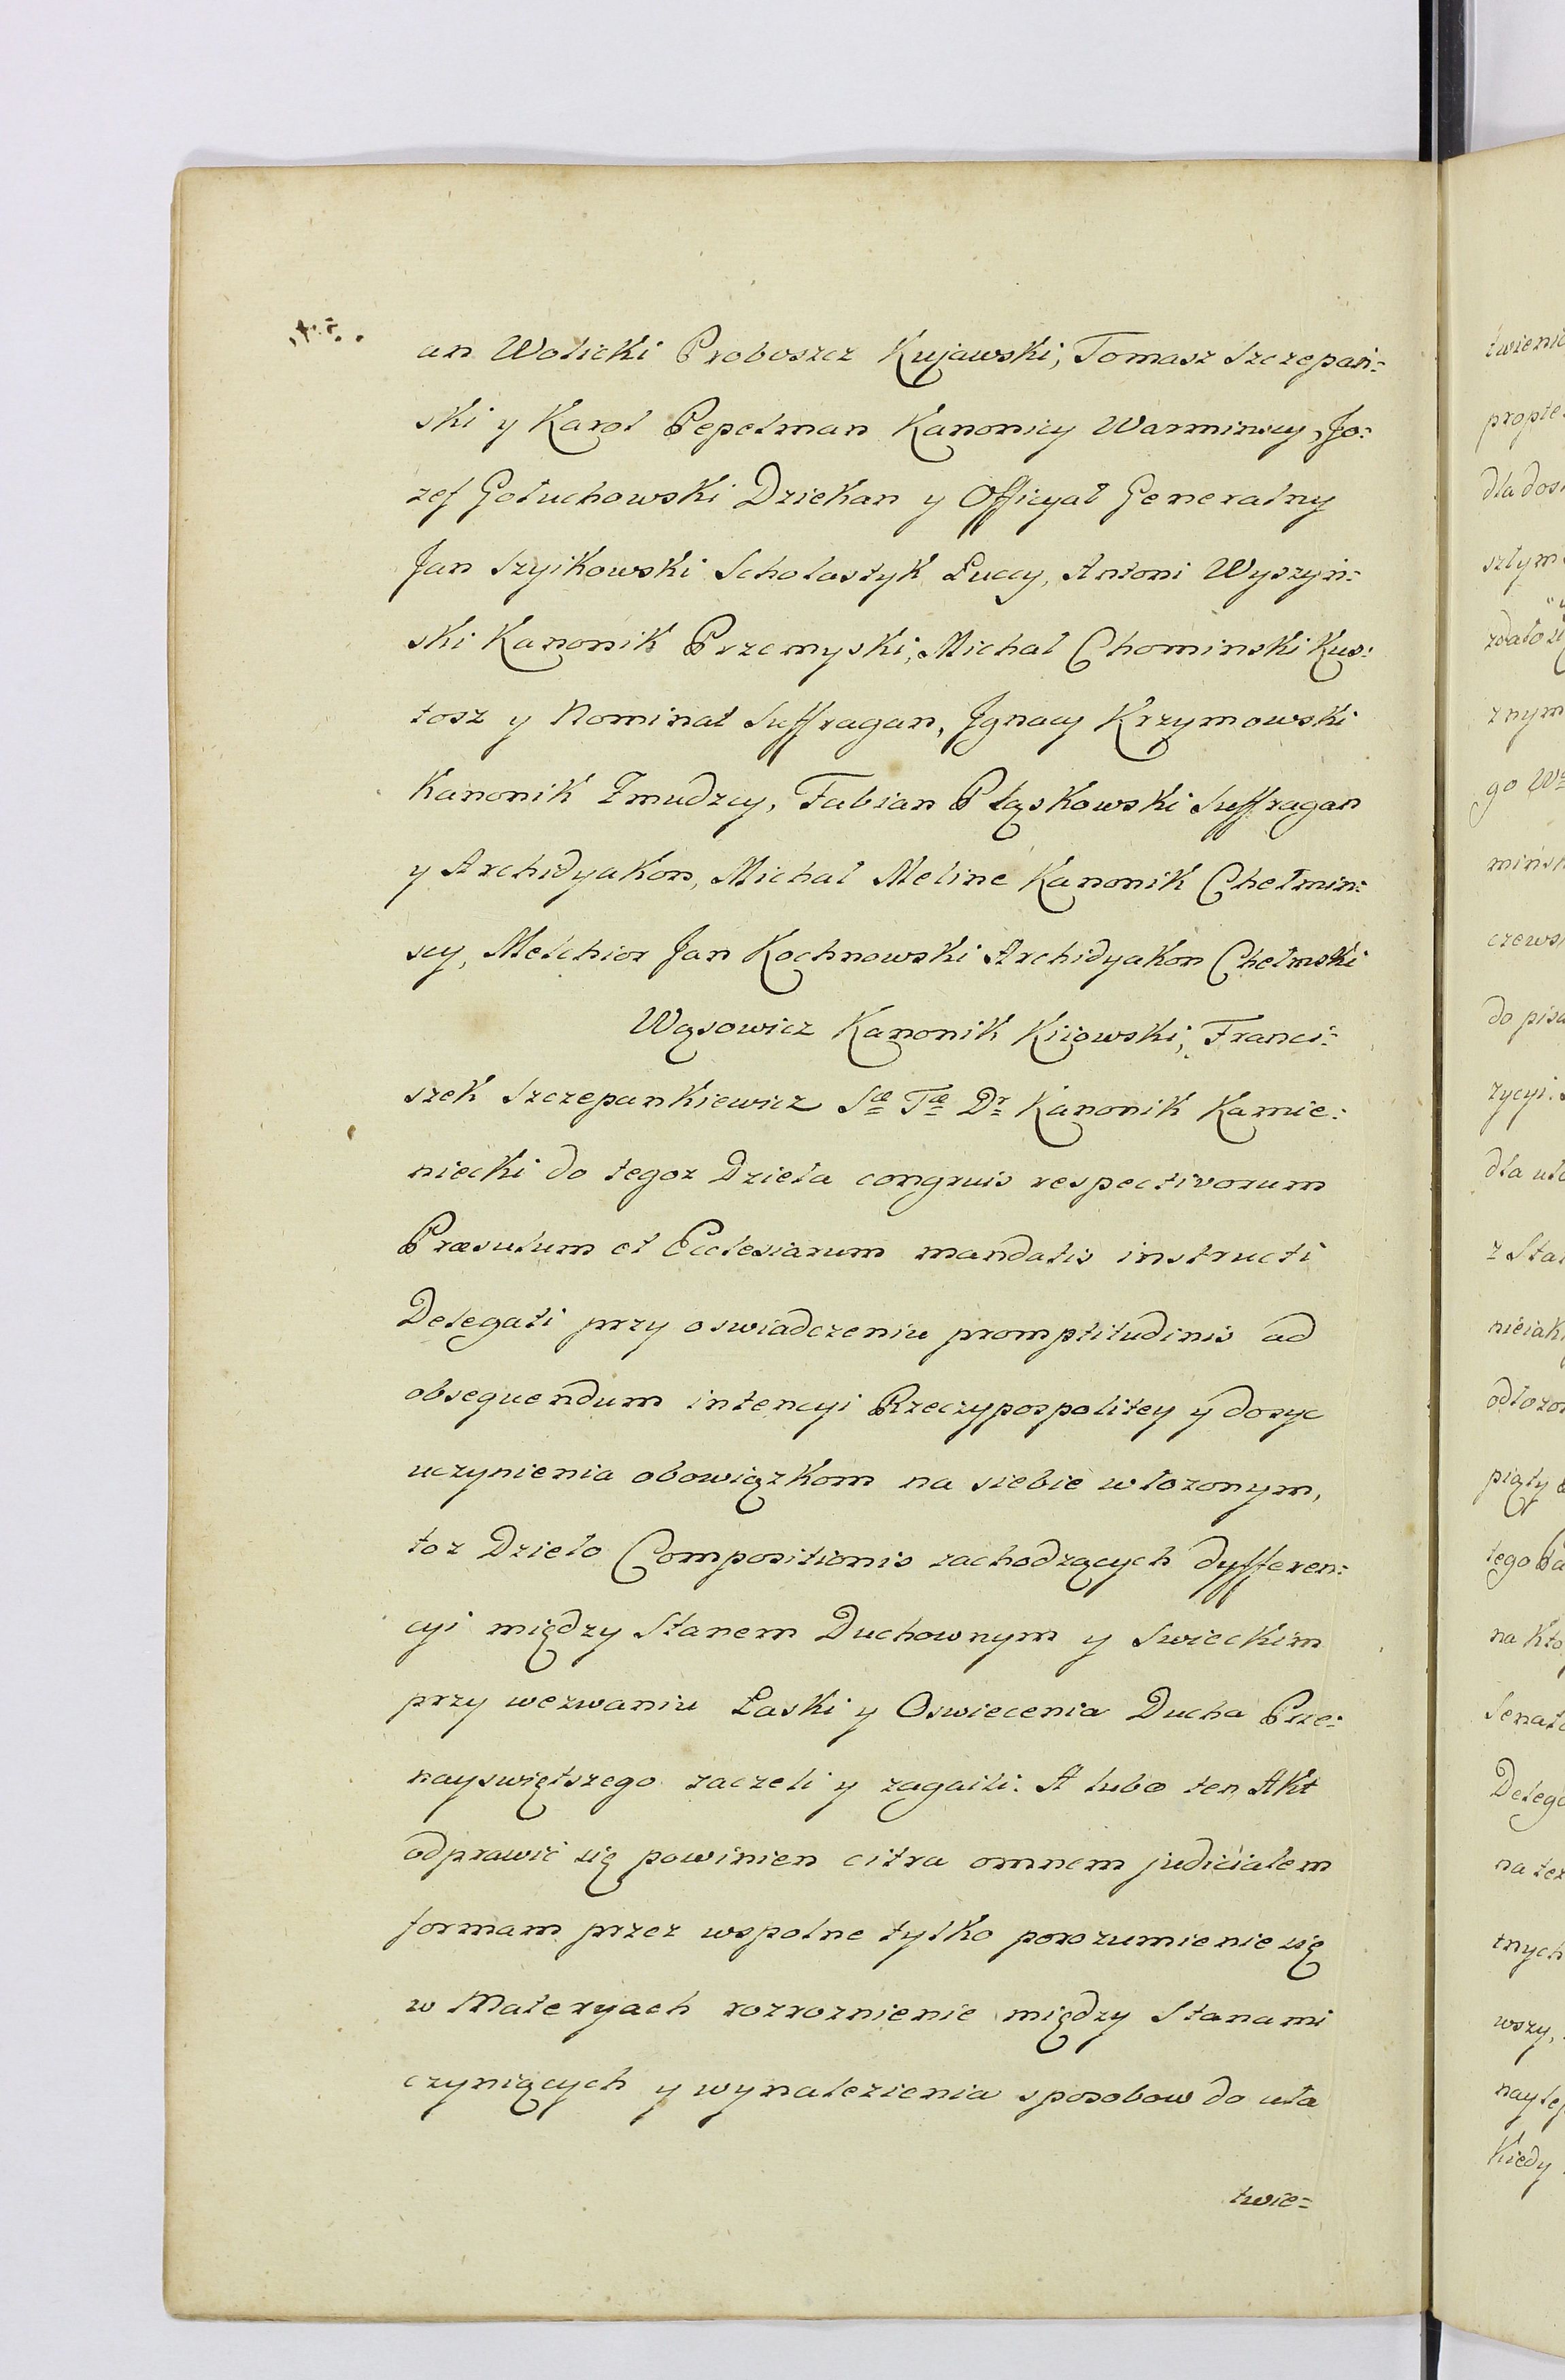 an Wolicki Proboszcz Kujawski, Tomasz Szczepań=
ski y Karol Pepelman Kanonicy Warminscy, Jo=
zef Gołuchowski Dziekan y Officyał Generalny
Jan Szyikowski Scholastyk Łuccy, Antoni Wyszyń=
ski Kanonik Przemyski, Michał Chominski Kus=
tosz y Nominat Suffragan, Jgnacy Krzymowski
Kanonik Zmudzcy, Fabian Pląskowski Suffragan
y Archidyakon, Michał Meline Kanonik Chełmin=
scy, Melchior Jan Kochnowski Archidyakon Chełmski
Wąsowicz Kanonik Kiiowski, Franci=
szek Szczepankiewicz Sæ Tæ Dr Kanonik Kamie=
niecki do tegoz Dzieła congruis respectivorum
Præsulum et Ecclesiarum mandatis instructi
Delegati przy oswiadczeniu promptitudinis ad
obsequendum intencyi Rzeczypospolitey y dosyc
uczynienia obowiązkom na siebie włozonym,
toz Dzieło Compositionis zachodzących dyfferen=
cyi między Stanem Duchownym y Swieckim
przy wezwaniu Łaski y Oswiecenia Ducha Prze=
nayswiętszego zaczeli y zagaili. A lubo ten Akt
odprawić się powinien citra omnem judicialem
formam przez wspolne tylko porozumienie się
w Materyach rozroznienie między Stanami
czyniących y wynalezienia sposobow do uła
twie=
twienic
dla dos
z nym
czews
do pisa
z Sta
nieiak
piąty
na kto
Senato
Delega
tnych
wszy,
Kiedy